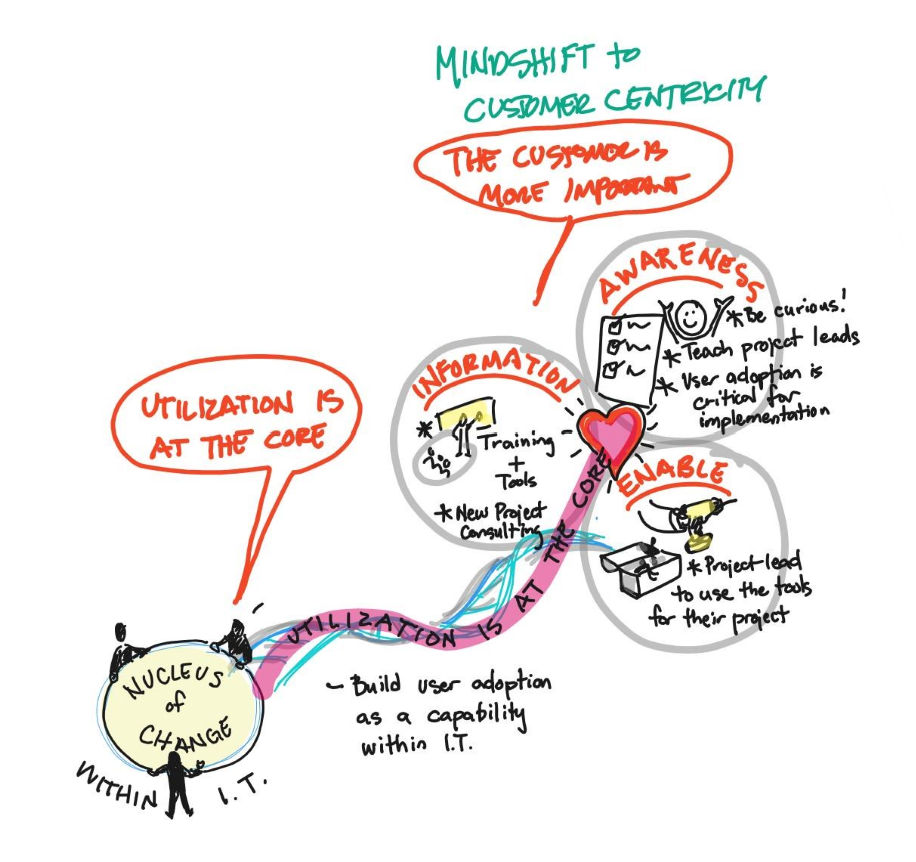 MINDSHIFT to
CUSTOMER CENTRICITY
THE CUSTOMER IS
MORE IMPORTANT
AWARENESS
* Be curious!
* Teach project leads
* User adoption is
critical for
implementation
INFORMATION
* Training
+
Tools
* New Project
Consulting
ENABLE
* Project lead
to use the tools
for their project
UTILIZATION IS
AT THE CORE
UTILIZATION IS AT THE CORE
- Build user adoption
as a capability
within I.T.
NUCLEUS
of
CHANGE
WITHIN I.T.